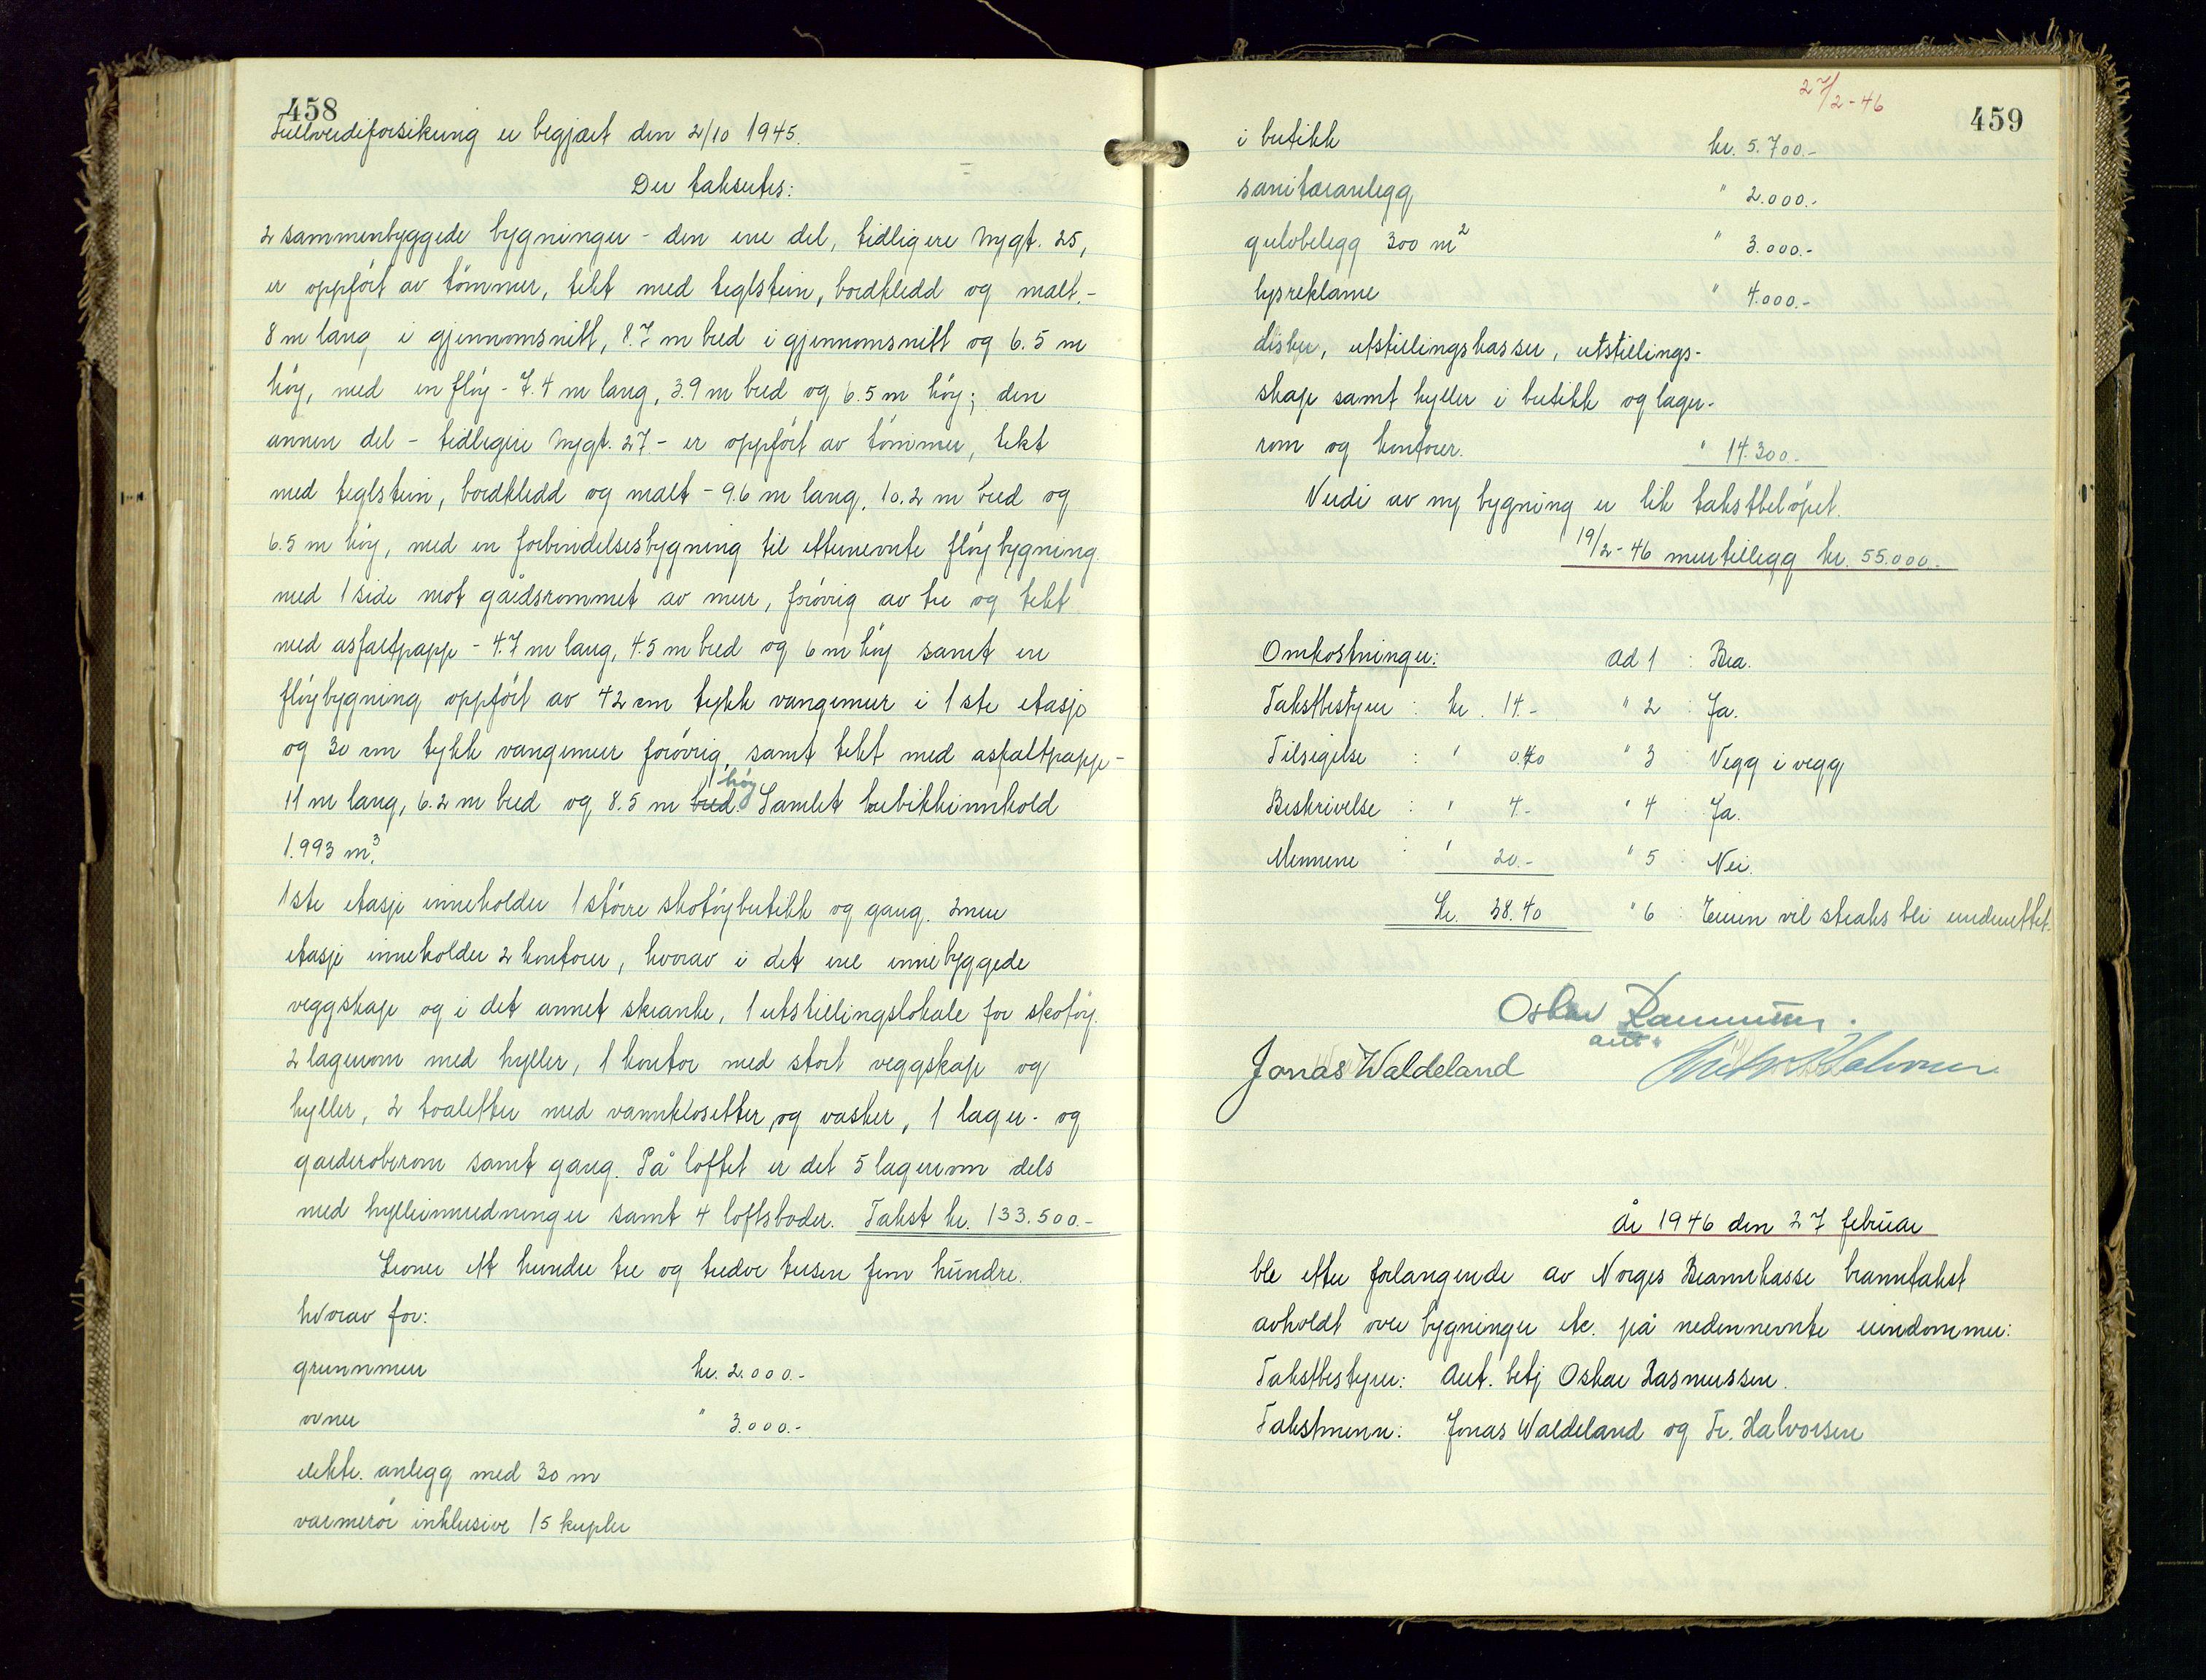 458
Fullverdiforsikring er begjært den 2/10 1945.
Der taksertes:
2 sammenbyggede bygninger - den ene del, tidligere Nygt. 25,
er oppført av tømmer, tekt med teglstein, bordkledd og malt.-
8 m lang i gjennomsnitt, 8.7 m bred i gjennomsnitt og 6.5 m
høy, med en fløy - 7.4 m lang, 3.9 m bred og 6.5 m høy; den
annen del - tidligere Nygt. 27 - er oppført av tømmer, tekt
med teglstein, bordkledd og malt - 9.6 m lang, 10.2 m bred og
6.5 m høy, med en forbindelsesbygning til etternevnte fløybygning
med 1 side mot gårdsrommet av mur, forøvrig av tre og tekt
med asfaltpapp - 4.7 m lang, 4.5 m bred og 6 m høy samt en
fløybygning oppført av 42 cm tykk vangemur i 1ste etasje
og 30 cm tykk vangemur forøvrig, samt tekt med asfaltpapp -
11 m lang, 6.2 m bred og 8.5 m bred høy. Samlet kubikkinnhold
1.993 m³.
1ste etasje inneholder 1 større skotøybutikk og gang. 2nen
etasje inneholder 2 kontorer, hvorav i det ene innebyggede
veggskap og i det annet skranke, 1 utstillingslokale for skotøy.
2 lagerrom med hyller, 1 kontor med stort veggskap og
hyller, 2 toaletter med vannklosetter og vasker, 1 lager- og
garderoberom samt gang. På loftet er det 5 lagerrom dels
med hylleinnredninger samt 4 loftsboder. Takst kr. 133.500.-
Kroner ett hundre tre og tredve tusen fem hundre.
hvorav for:
grunnmur kr. 2.000.-
ovner " 3.000.-
elektr. anlegg med 30 m
varmerør inklusive 15 kupler
27/2-46
459
i butikk kr. 5.700.-
sanitæranlegg " 2.000.-
gulvbelegg 300 m² " 3.000.-
lysreklame " 4.000.-
disker, utstillingskasser, utstillings-
skap samt hyller i butikk og lager-
rom og kontorer. " 14.300.-
Verdi av ny bygning er lik takstbeløpet.
19/2-46 mertillegg kr. 55.000.-
Omkostninger: ad 1 : Bra.
Takstbestyrer : kr. 14.- " 2 : Ja.
Tilsigelse : " 0.40 " 3 Vegg i vegg
Beskrivelse : " 4.- " 4 : Ja.
Mennene : " 20.- " 5 : Nei.
Kr. 38.40 " 6 : Eieren vil straks bli underrettet.
Oskar Rasmussen.
aut.
Jonas Waldeland Halvorsen
År 1946 den 27 februar
ble etter forlangende av Norges Brannkasse branntakst
avholdt over bygninger etc. på nedennevnte eiendommer:
Takstbestyrer: Aut. betj Oskar Rasmussen.
Takstmenn: Jonas Waldeland og Fr. Halvorsen